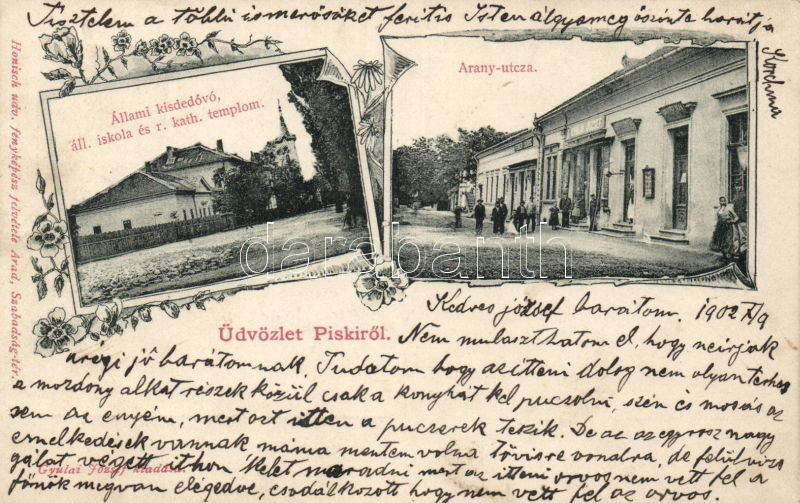 Tisztelem a többi ismerősöket feritis Isten álgyameg öszinte barátja
Korhma
Honisch udv. fényképész felvétele Arad, Szabadság-tér.
Állami kisdedóvó,
áll. iskola és r. kath. templom.
Arany-utcza.
darabanth
Üdvözlet Piskiről.
Kedves józsef barátom. 1902
Nem mulaszthatom el, hogy neirjak
régi jó barátomnak, Tudatom hogy azitteni dolog nem olyan terhes
a mozdony alkat részek közül csak a konyhát kel pucsolni, szén és mosás az
sem az enyém, mert azt itten a pucserek teszik. De az az egy rosz nagy
emelkedések vannak máma mentem volna tövisre vonalra, de felül vizs
gálat végett it hon kelet maradni mert az itteni orvos nem vett fel a
Gyulai József kiadása.
főnök megvan elégedve, csodálkozott hogy nem vett fel az orvos